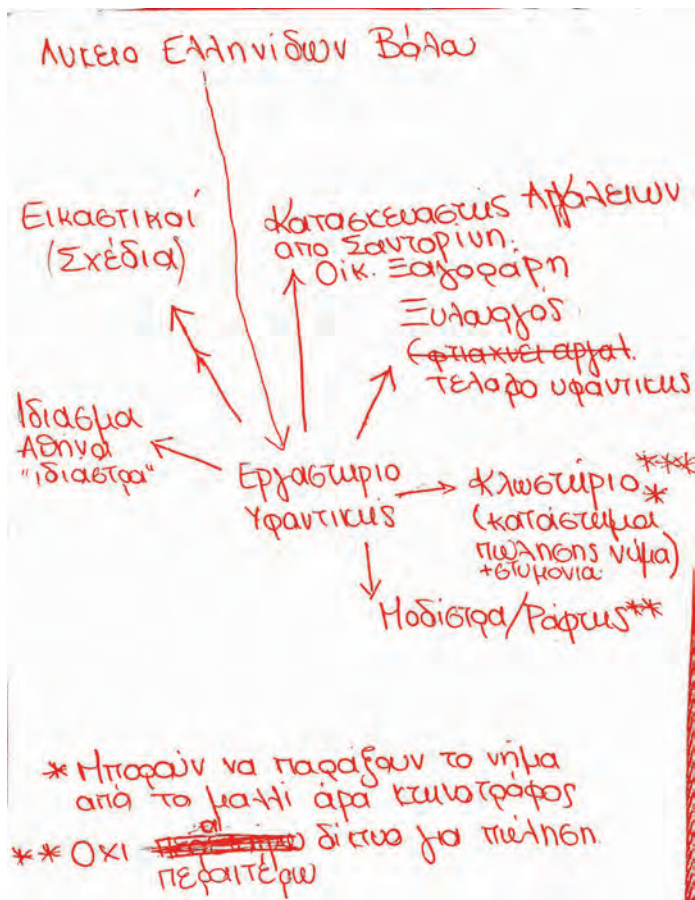 Λυκειο Ελληνίδων Βόλου
Εικαστικοί
(Σχέδια)
Κατασκευαστής Αργαλειων
απο Σαντορινη.
Οικ. Ξαγοράρη
Ξυλουργος
(φτιαχνει αργαλ.
τελαρο υφαντικης
Ιδιασμα
Αθηνα
"ιδιαστρα"
Εργαστηριο
Υφαντικής
Κλωστήριο * ***
(κατάστημα
πώλησης νήμα)
+στυμονια.
Μοδίστρα/Ράφτης **
* Μπορούν να παράξουν το νήμα
από το μαλλί άρα κτινοτρόφος
** Οχι δίκτυο για πώληση
περαιτέρω